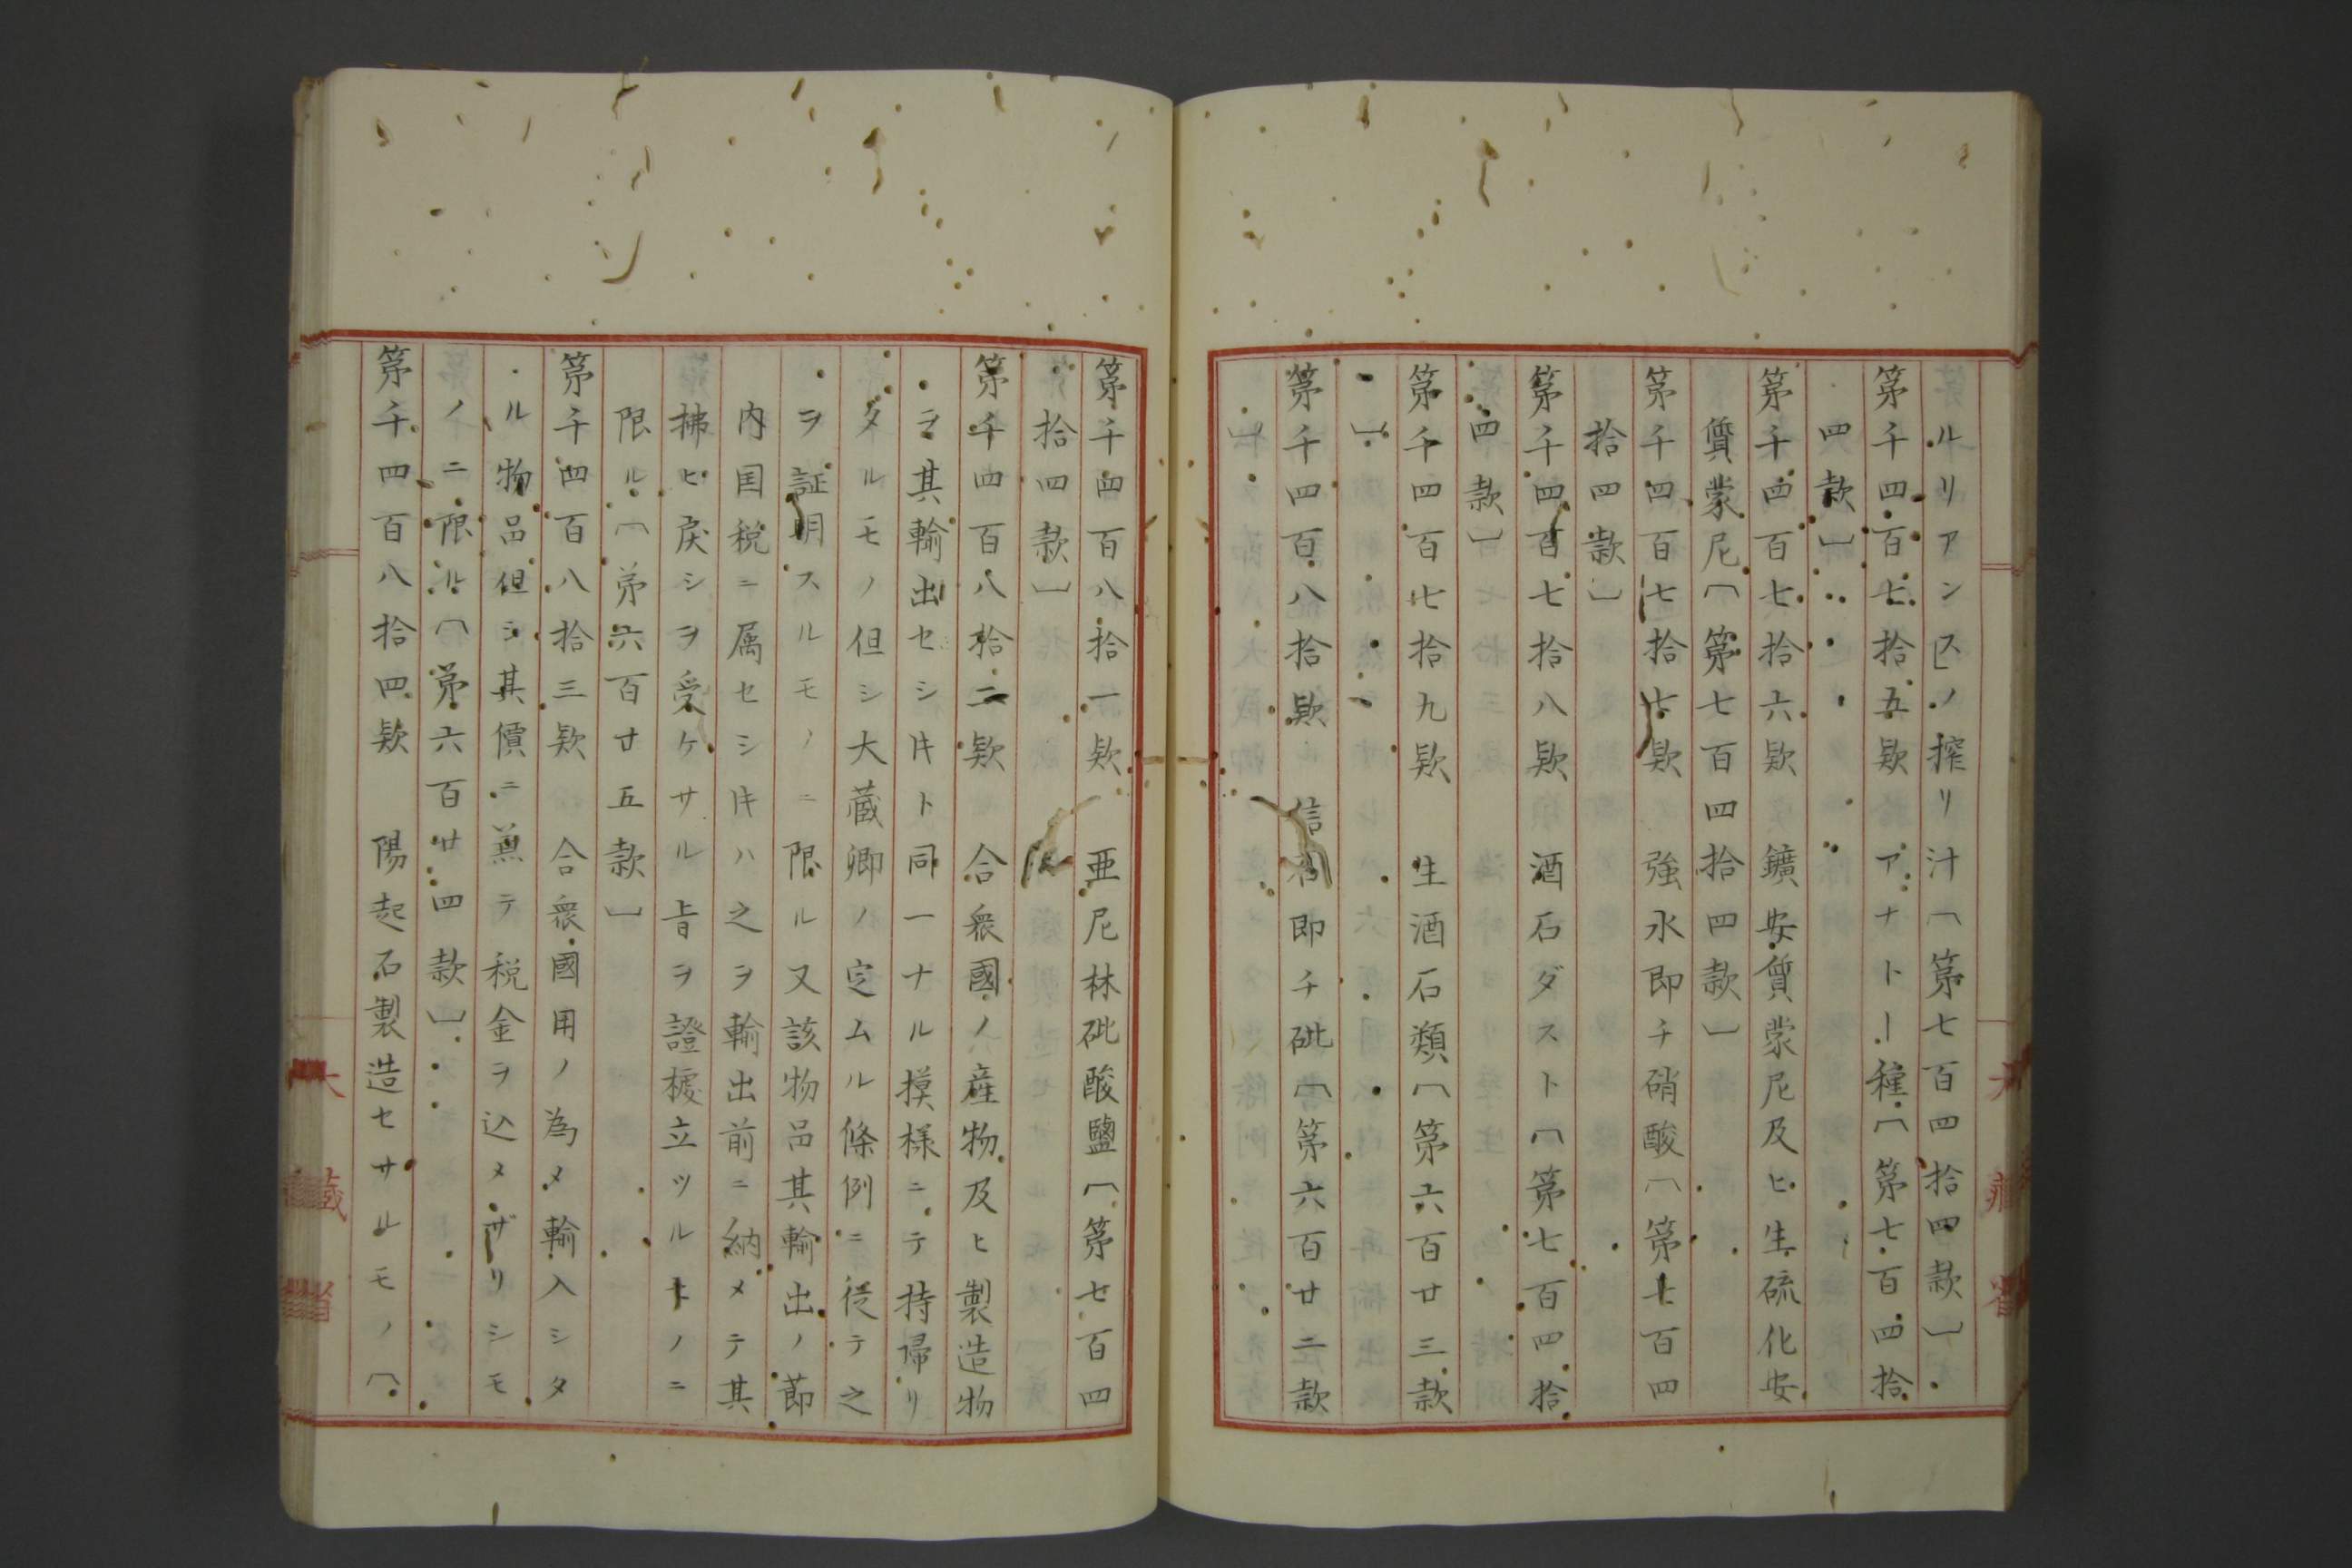 ルリアンス」ノ搾リ汁〔第七百四拾四款〕
第千四百七拾五欵　アナトー種〔第七百四拾
四款〕
第千四百七拾六欵　鑛安質蒙尼及ヒ生硫化安
質蒙尼〔第七百四拾四款〕
第千四百七拾七欵　強水即チ硝酸〔第七百四
拾四款〕
第千四百七拾八欵　酒石ダスト〔第七百四拾
四款〕
第千四百七拾九欵　生酒石類〔第六百廿三款
〕
第千四百八拾欵　信石即チ砒〔第六百廿二款
〕
第千四百八拾一欵　亜尼林砒酸鹽〔第七百四
拾四款〕
第千四百八拾二欵　合衆國ノ産物及ヒ製造物
ニテ其輸出セシ𪜈ト同一ナル摸様ニテ持帰リ
タルモノ但シ大蔵卿ノ定ムル條例ニ従テ之
ヲ証明スルモノニ限ル又該物品其輸出ノ節
内国税ニ属セシ𪜈ハ之ヲ輸出前ニ納メテ其
拂ヒ戻シヲ受ケサル旨ヲ證拠立ツルモノニ
限ル〔第六百廿五款〕
第千四百八拾三欵　合衆國用ノ為メ輸入シタ
ル物品但シ其價ニ兼テ税金ヲ込メザリシモ
ノニ限ル〔第六百廿四款〕
第千四百八拾四欵　陽起石製造セサルモノ〔
大藏省
大藏省